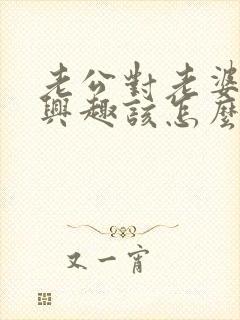 老公對老婆
興趣該怎麼
又一宵